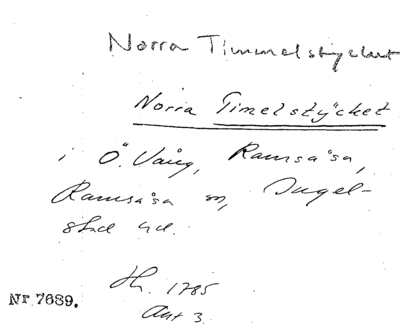 Norra Timmelstycket
Norra Timelstycket
i Ö. Vång, Ramsåsa,
Ramsåsa sn, Ingel-
stad hd.
Hr. 1785
Akt 3.
Nr 7689.